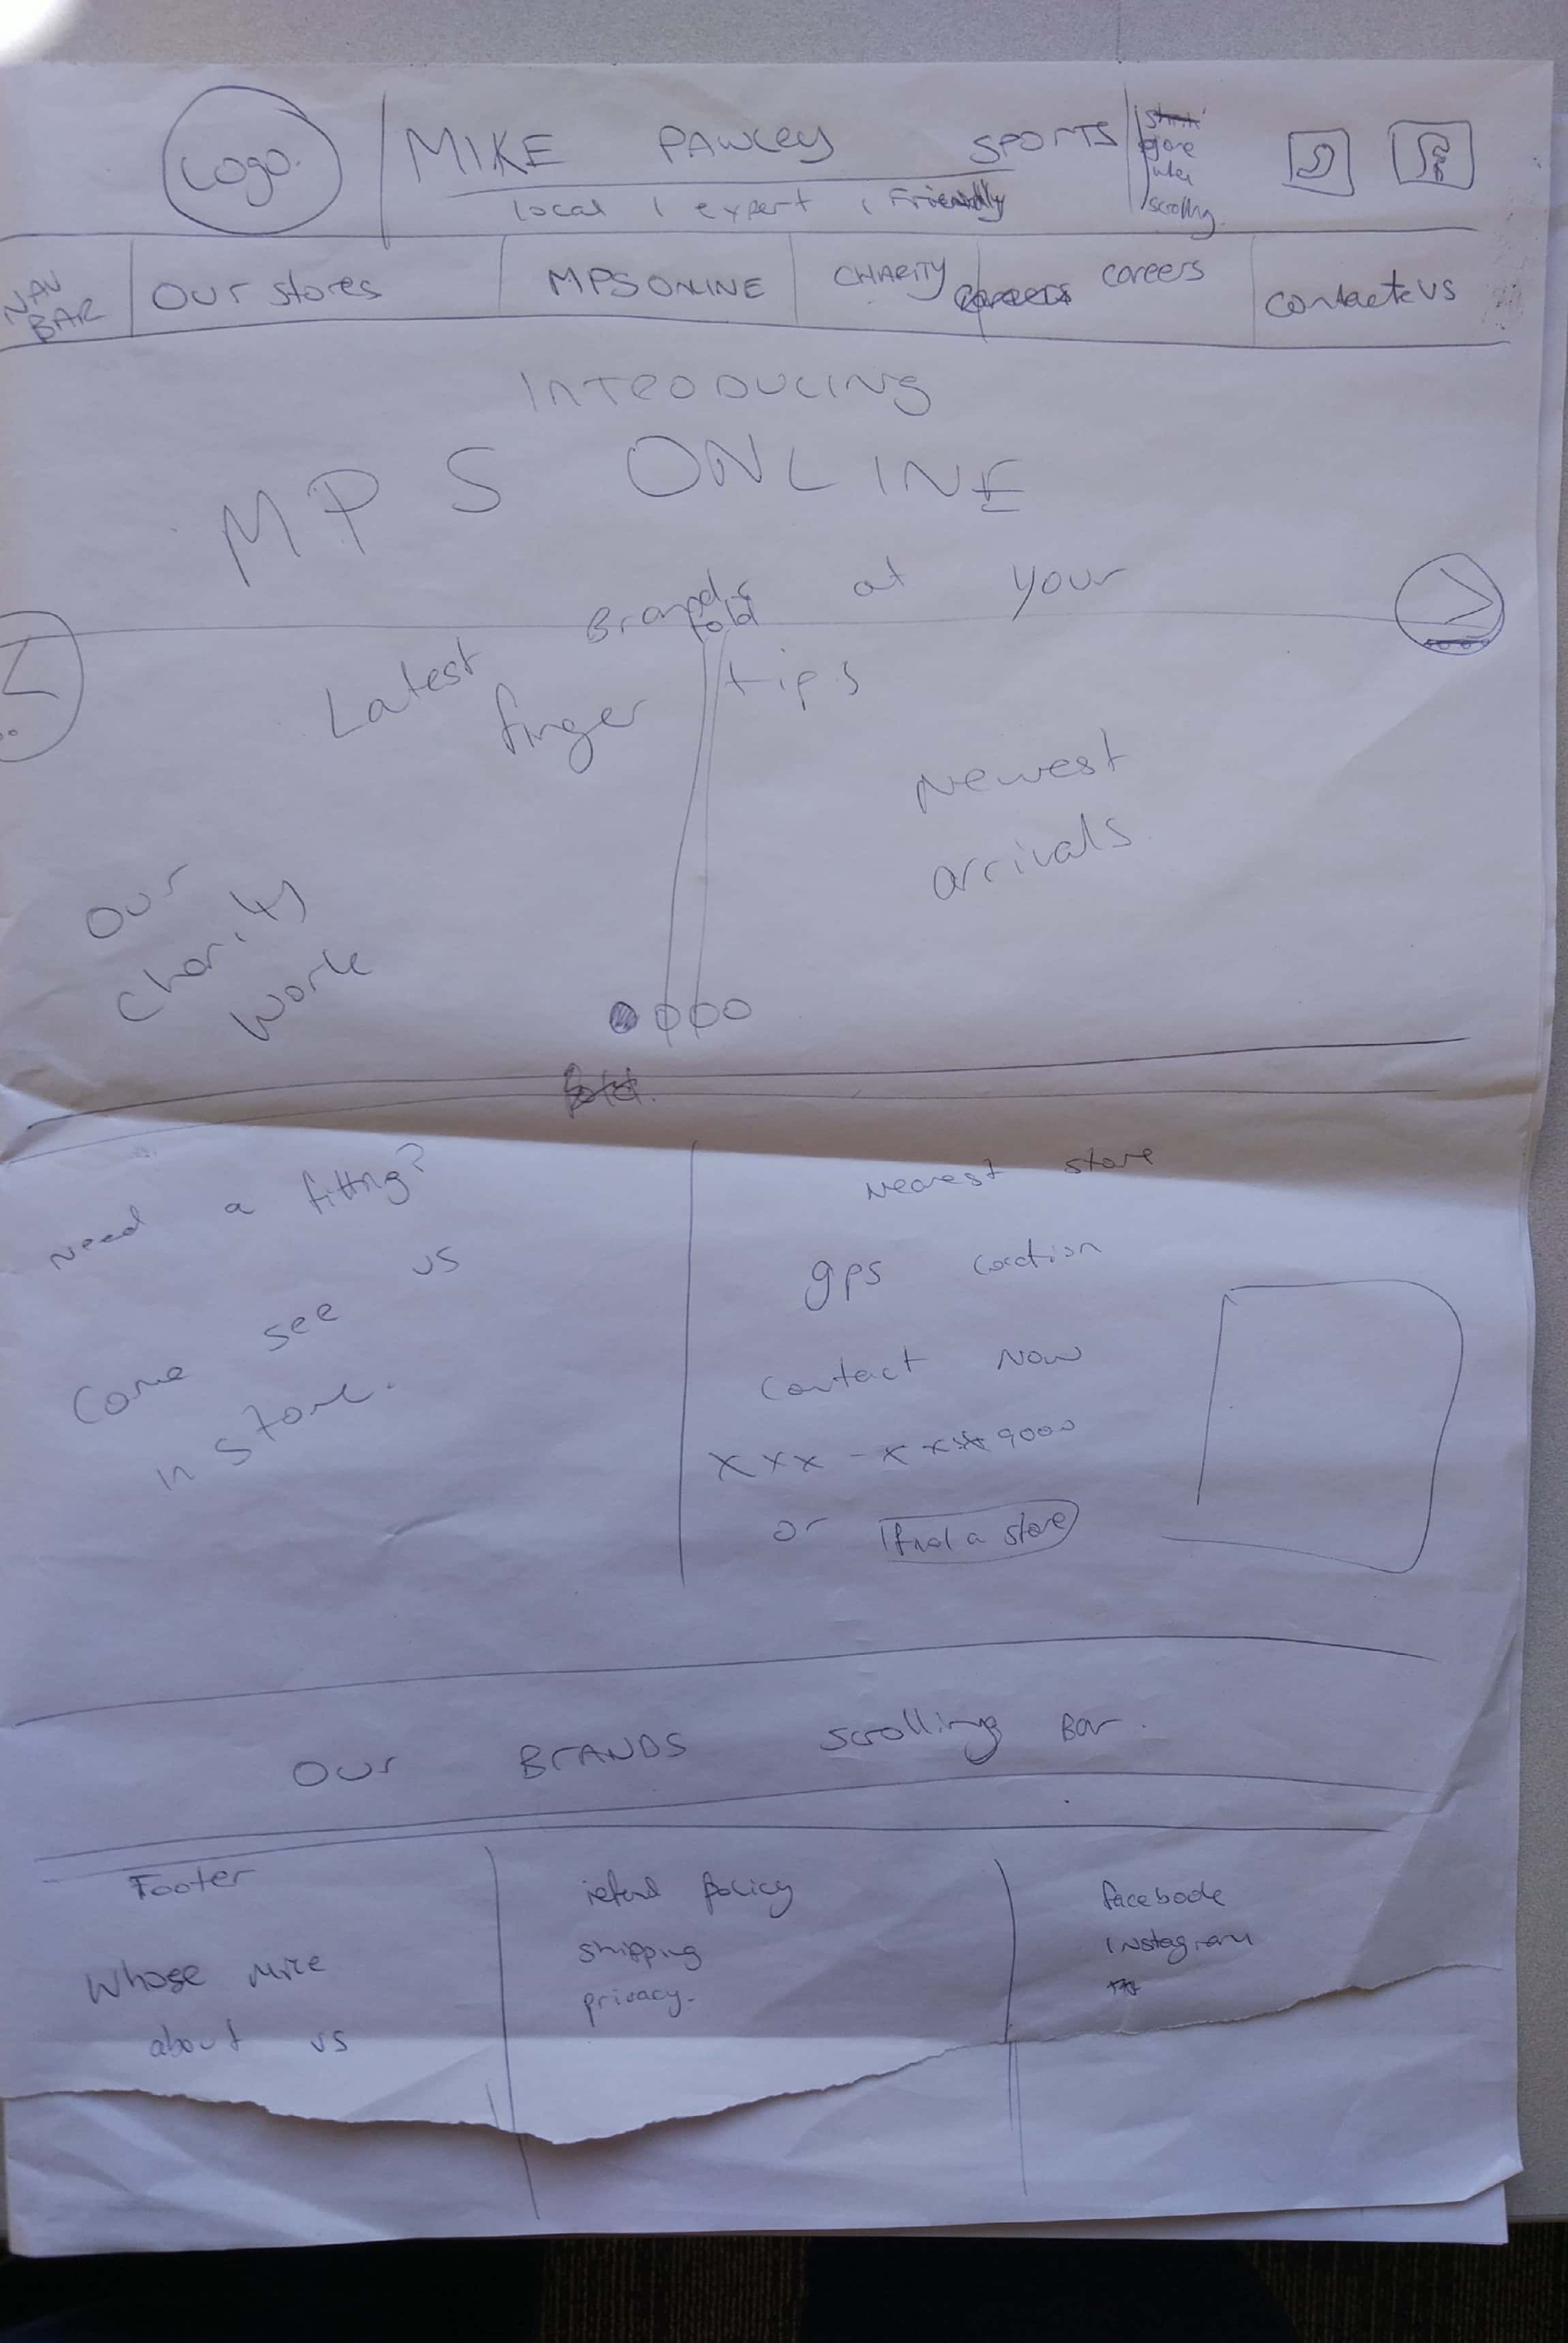 Logo.
MIKE PAWLEY SPORTS
local | expert | Friendly
gone
when
scrolling
NAV BAR
Our stores
MPSONLINE
CHARITY
careers
contact us
INTRODUCING
MPS ONLINE
Latest Brands at your
finger tips
fold
Newest
arrivals
Our
charity
work
need a fitting?
Come see us
in store.
Nearest store
gps location
contact now
or find a store
Our BRANDS scrolling Bar.
Footer
Whose Mike
about us
refund policy
shipping
privacy.
facebook
Instagram